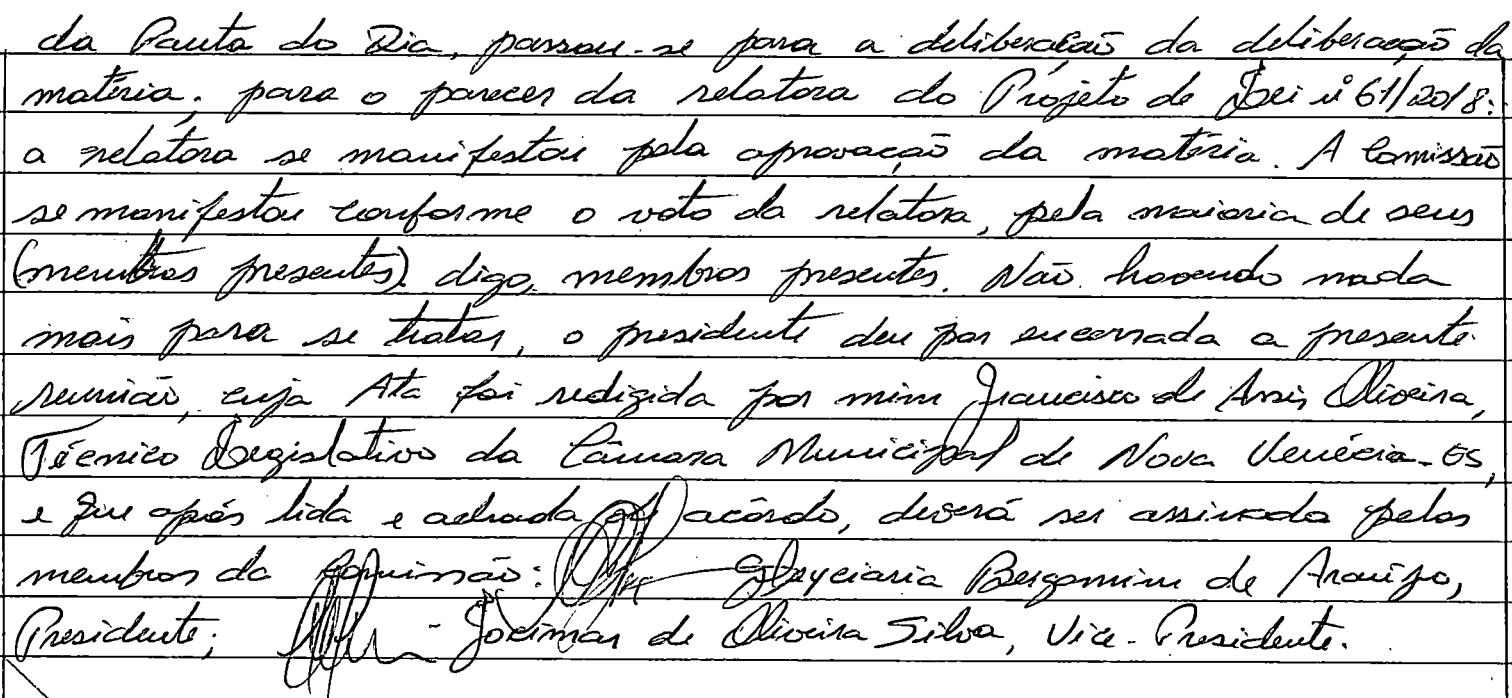 da Pauta do Dia, passou-se para a deliberação da deliberação da
matéria; para o parecer da relatora do Projeto de Lei nº 61/2018:
a relatora se manifestou pela aprovação da matéria. A Comissão
se manifestou conforme o voto da relatora, pela maioria de seus
(membros presentes) digo, membros presentes. Não havendo nada
mais para se tratar, o presidente deu por encerrada a presente
reunião, cuja Ata foi redigida por mim Francisco de Assis Oliveira,
Técnico Legislativo da Câmara Municipal de Nova Venécia-ES,
e que após lida e achada de acôrdo, deverá ser assinada pelos
membros da Comissão: Gleyciaria Bergamim de Araújo,
Presidente; - Jocimar de Oliveira Silva, Vice-Presidente.